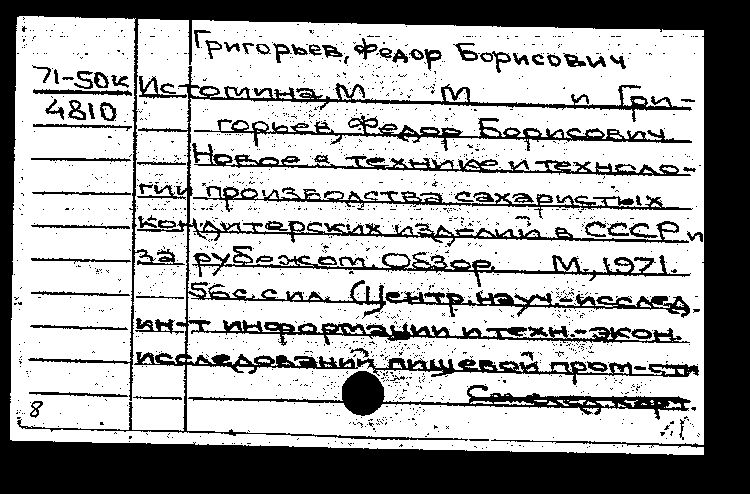 Григорьев, Федор Борисович
71-50к Истомина, М М и Гри-
4810 горьев, Федор Борисович.
Новое в технике и техноло-
гии производства сахаристых
кондитерских изделий в СССР и
за рубежом. Обзор. М., 1971.
56 с. с ил. (Центр. науч.-исслед.
ин-т информации и техн.-экон.
исследований пищевой пром-сти
См. след. карт.
8